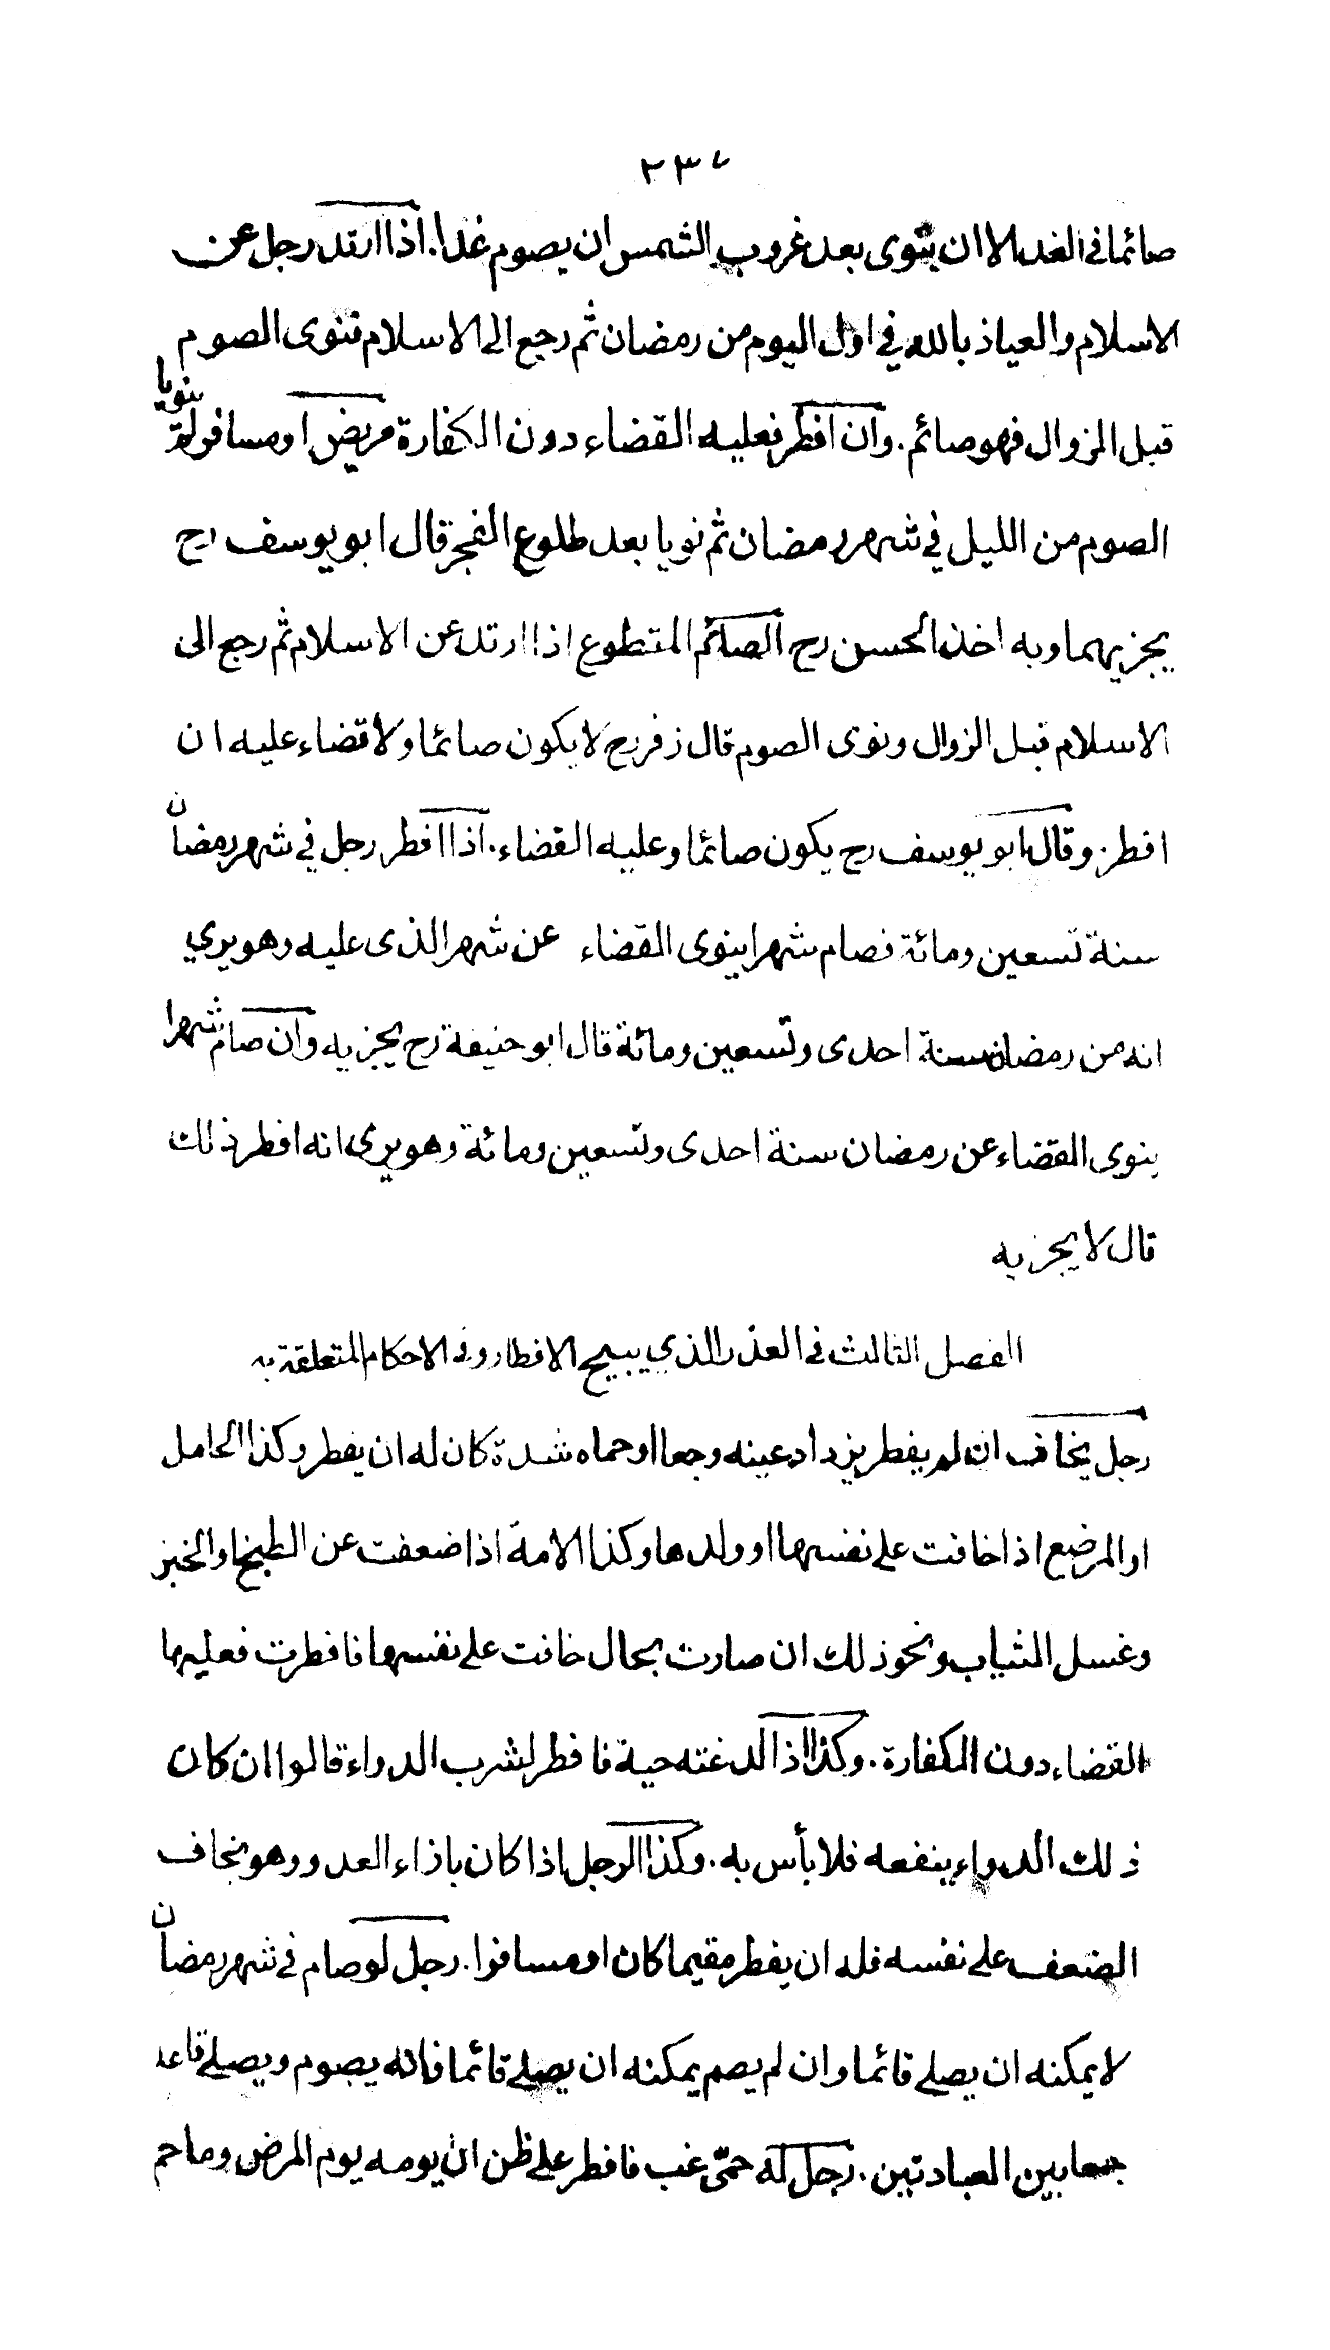 ٢٣٧
صائما في الغد الا ان ينوى بعد غروب الشمس ان يصوم غدا. اذا ارتد رجل عن
الاسلام والعياذ بالله في اول اليوم من رمضان ثم رجع الى الاسلام فنوى الصوم
قبل الزوال فهو صائم. وان افطر فعليه القضاء دون الكفارة مريض او مسافر لم ينويا
الصوم من الليل في شهر رمضان ثم نويا بعد طلوع الفجر قال ابو يوسف رح
يجزيهما وبه اخذ الحسن رح الصائم المتطوع اذا ارتد عن الاسلام ثم رجع الى
الاسلام قبل الزوال ونوى الصوم قال زفر رح لا يكون صائما ولا قضاء عليه ان
افطر. وقال ابو يوسف رح يكون صائما وعليه القضاء. اذا افطر رجل في شهر رمضان
سنة تسعين ومائة فصام شهرا ينوى القضاء عن شهر الذى عليه وهو يري
انه من رمضان سنة احدى وتسعين ومائة قال ابو حنيفة رح يجزيه وان صام شهرا
ينوى القضاء عن رمضان سنة احدى وتسعين ومائة وهو يرى انه افطر ذلك
قال لا يجزيه
الفصل الثالث في العذر الذي يبيح الافطار وفي الاحكام المتعلقة به
رجل يخاف ان لم يفطر يزداد عينه وجعا او حماه شدة كان له ان يفطر وكذا الحامل
او المرضع اذا خافت على نفسها او ولدها وكذا الامة اذا ضعفت عن الطبخ او الخبز
وغسل الثياب ونحو ذلك ان صارت بحال خافت على نفسها فافطرت فعليها
القضاء دون الكفارة. وكذا اذا لدغته حية فافطر لشرب الدواء قالوا ان كان
ذلك الدواء ينفعه فلا بأس به. وكذا الرجل اذا كان بازاء العدو وهو يخاف
الضعف على نفسه فله ان يفطر مقيما كان او مسافرا. رجل لو صام في شهر رمضان
لا يمكنه ان يصلي قائما وان لم يصم يمكنه ان يصلي قائما فانه يصوم ويصلي قاعدا
جمعا بين العبادتين. رجل له حمّى غب فافطر على ظن ان يومه يوم المرض وما حم